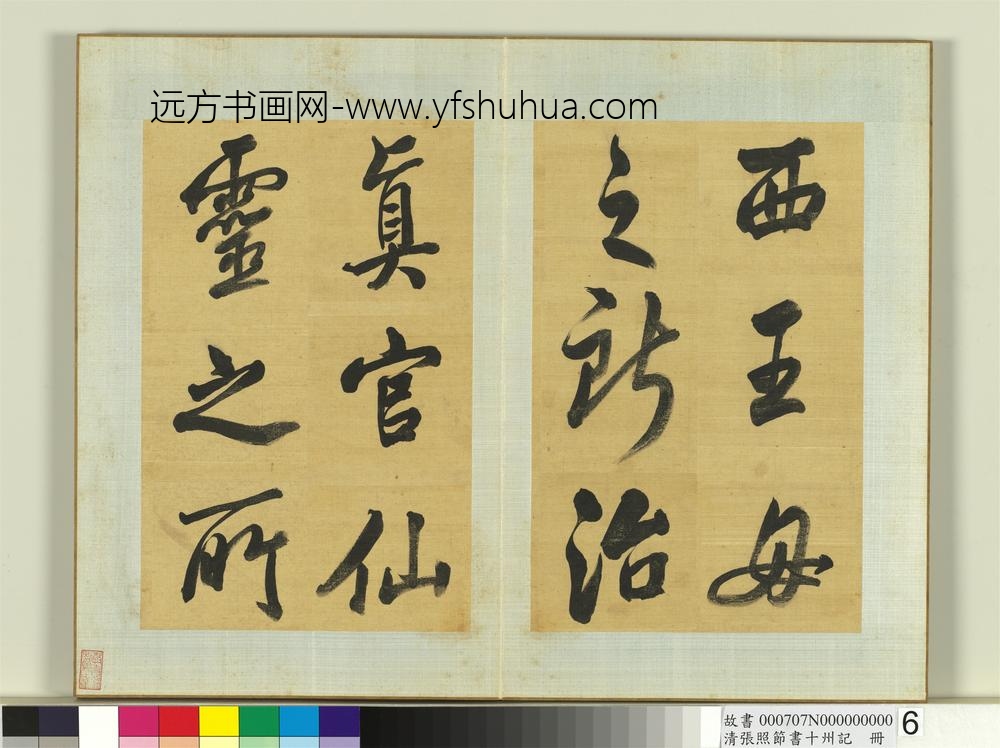 远方书画网-www.yfshuhua.com
西王母
之所治
真官仙
靈之所
故書 000707N000000000
清張照節書十州記 冊
6